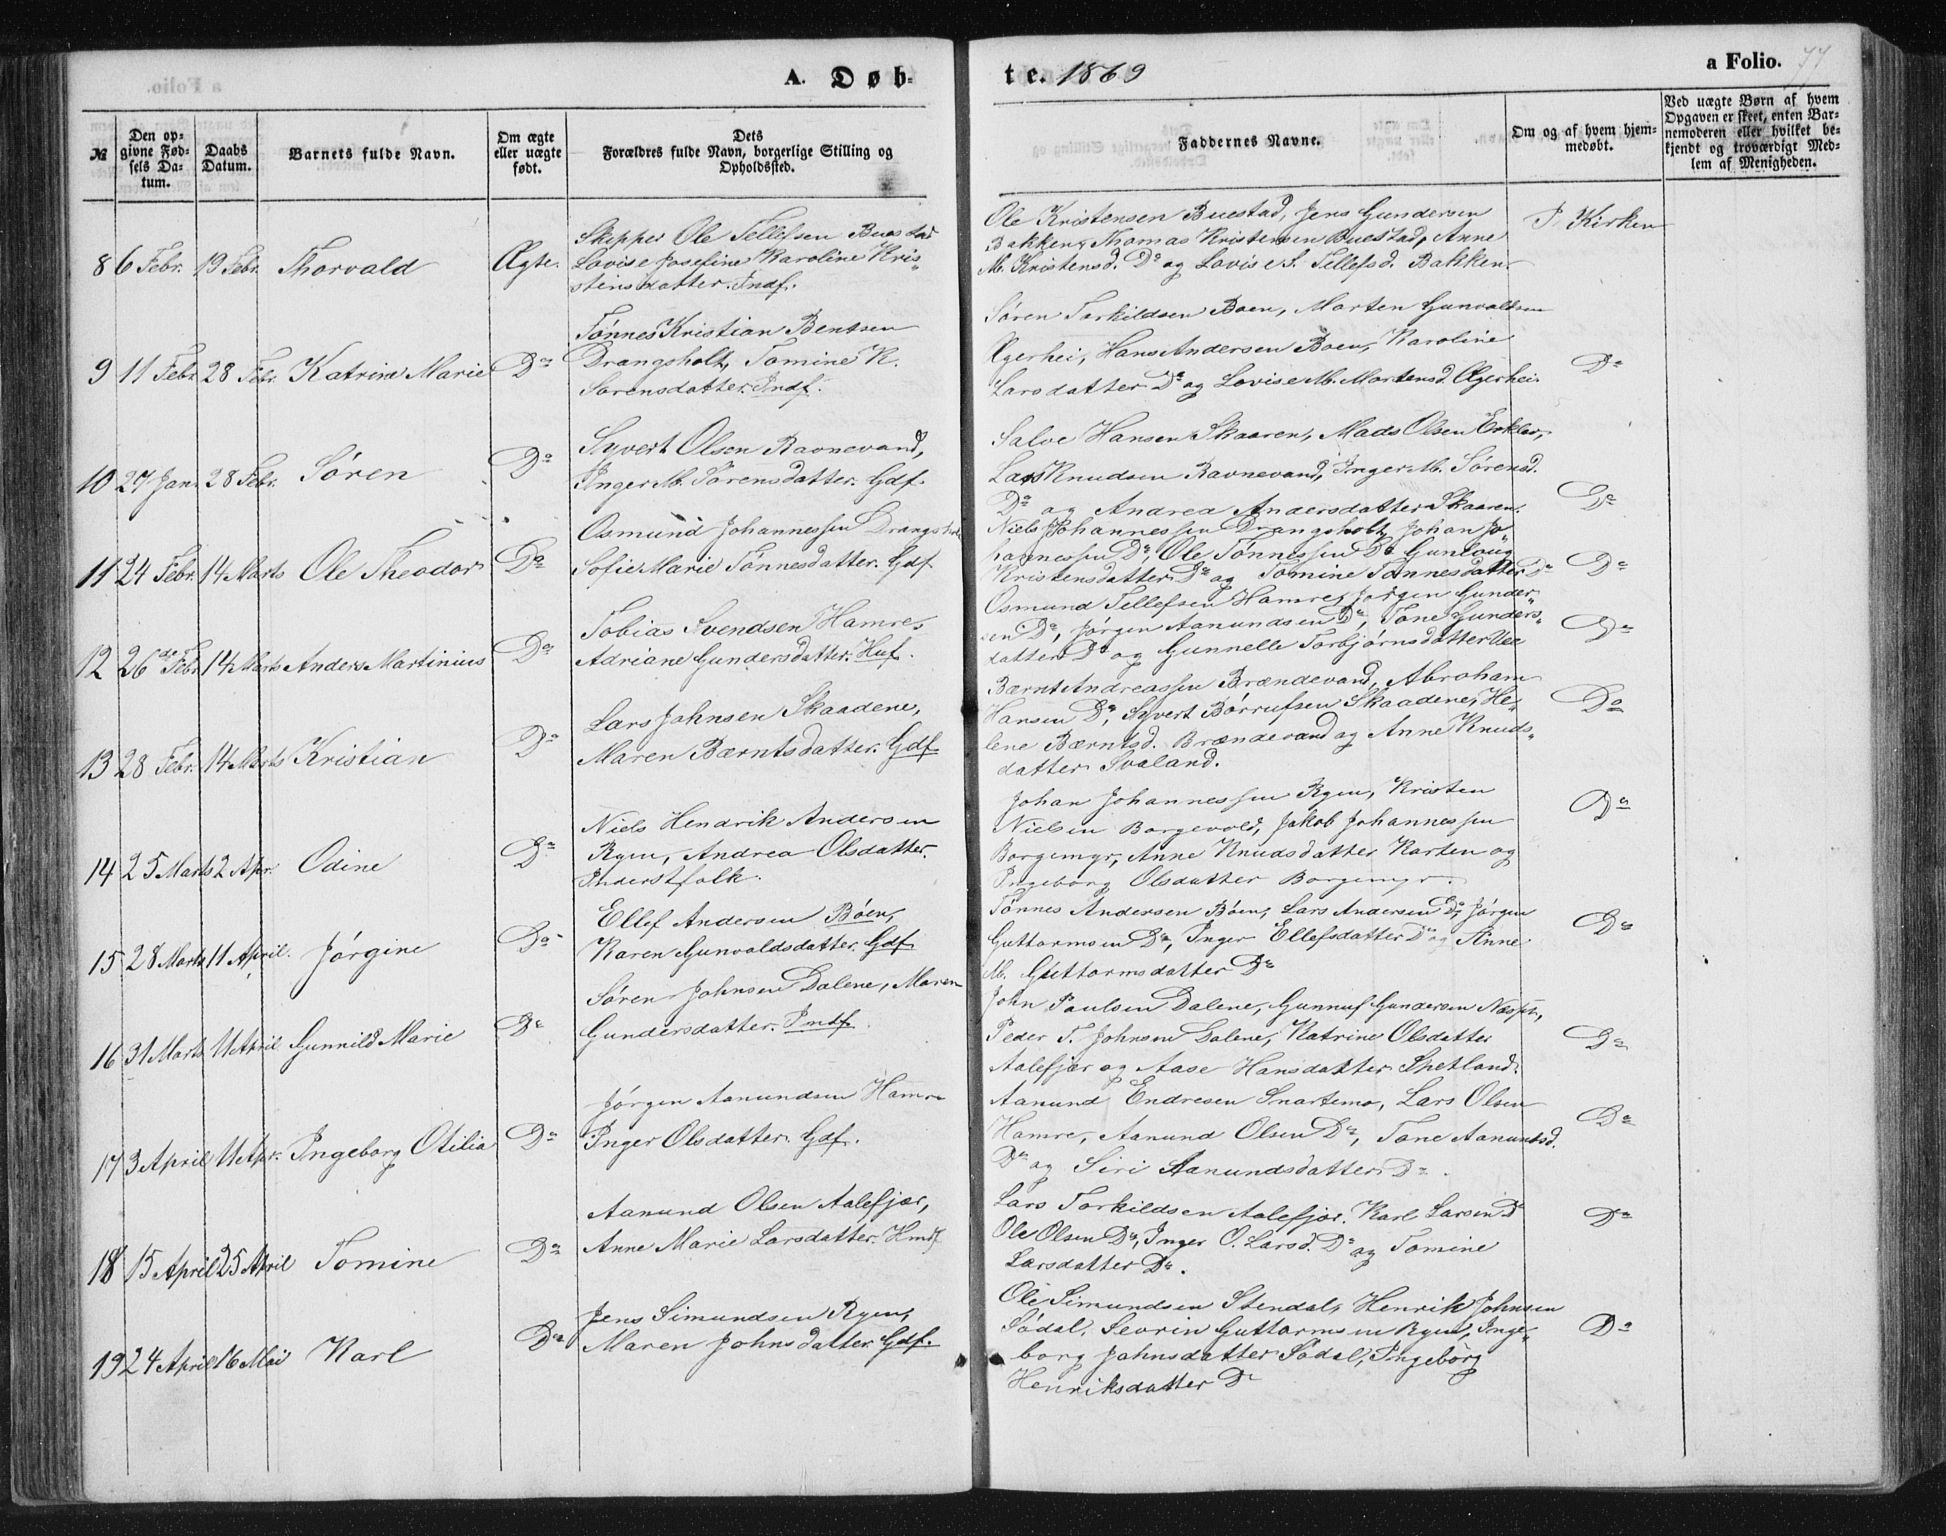 A. Døb-
te. 1869
a Folio. 77
№
Den op-
givne Fød-
sels Da-
tum.
Daabs
Datum.
Barnets fulde Navn.
Om ægte
eller uægte
født.
Dets
Forældres fulde Navn, borgerlige Stilling og
Opholdssted.
Faddernes Navne.
Om og af hvem hjem-
medøbt.
Ved uægte Børn af hvem
Opgaven er skeet, enten Bar-
nemoderen eller hvilket be-
kjendt og troværdigt Med-
lem af Menigheden.
8 6 Febr. 19 Febr. Thorvald Ægte.
Skipper Ole Tellefsen Buestad
Lovise Josefine Karoline Kri-
stensdatter. Indf.
Ole Kristensen Buestad, Jens Gundersen
Bakken, Thomas Kristensen Buestad, Anne
M. Kristensd. Do og Lovise S. Tellefsd. Bakken.
I Kirken
9 11 Febr. 28 Febr. Katrine Marie Do
Tønnes Kristian Bentsen
Drangsholt, Tomine K.
Sørensdatter. Indf.
Søren Torkildsen Boen, Morten Gunvaldsen
Ægerhei, Hans Andersen Boen, Karoline
Larsdatter Do og Lovise M. Mortensd. Ægerhei.
Do
10 27 Jan. 28 Febr. Søren Do
Syvert Olsen Ravnevand,
Inger M. Sørensdatter. Gdf.
Salve Hansen Skaaren, Mads Olsen Erklev,
Lars Knudsen Ravnevand, Inger M. Sørensd.
Do og Andrea Andersdatter Skaaren.
Do
11 24 Febr. 14 Marts Ole Theodor Do
Osmund Johannessen Drangsholt
Sofie Marie Tønnesdatter. Gdf.
Niels Johannessen Drangsholt, Johan Jo-
hannessen Do, Ole Tønnessen Do, Gunloug
Kristensdatter Do og Tomine Tønnesdatter Do
Do
12 26de Febr. 14 Marts Anders Martinius Do
Tobias Svendsen Hamre,
Adriane Gundersdatter. Huf.
Osmund Tellefsen Hamre, Jørgen Gunder-
sen Do, Jørgen Aanundsen Do, Tone Gunders-
datter Do og Gunnelle Torbjørnsdatter
Do
13 28 Febr. 14 Marts Kristian Do
Lars Johnsen Skaadene,
Maren Bærntsdatter. Gdf.
Bærnt Andreassen Brændevand, Abraham
Hansen Do, Syvert Børrufsen Skaadene, He-
lene Bærntsd. Brændevand og Anne Knuds-
datter Svaland.
Do
14 25 Marts 2 Apr. Odine Do
Niels Hendrik Andersen
Ryen, Andrea Olsdatter.
Inderstfolk.
Johan Johannessen Ryen, Kristen
Nielsen Borgevold, Jakob Johannessen
Borgemyr, Anne Knudsdatter Karten og
Ingeborg Olsdatter Borgemyr.
Do
15 28 Marts 11 April. Jørgine Do
Ellef Andersen Bøen,
Karen Gunvaldsdatter. Gdf.
Tønnes Andersen Bøen, Lars Andersen Do, Jørgen
Guttormsen Do, Inger Ellefsdatter Do og Anne
M. Guttormsdatter Do
Do
16 31 Marts 11 April Gunnild Marie Do
Søren Johnsen Dalene, Maren
Gundersdatter. Indf.
John Paulsen Dalene, Gunnuf Gundersen
Peder T. Johnsen Dalene, Katrine Olsdatter
Aalefjær og Aase Hansdatter Spetland.
Do
17 3 April 11 Apr. Ingeborg Otilia Do
Jørgen Aanundsen Hamre
Inger Olsdatter. Gdf.
Aanund Endresen Snartemo, Lars Olsen
Hamre, Aanund Olsen Do, Tone Aanundsd.
Do og Siri Aanundsdatter Do.
Do
18 15 April 25 April Tomine Do
Aanund Olsen Aalefjær,
Anne Marie Larsdatter.
Lars Torkildsen Aalefjær. Karl Larsen Do
Ole Olsen Do, Inger O. Larsd. Do og Tomine
Larsdatter Do.
Do
19 24 April 16 Mai Karl Do
Jens Simundsen Ryen,
Maren Johnsdatter. Gdf.
Ole Simundsen Stendal, Henrik Johnsen
Sødal, Sevrin Guttormsen Ryen, Inge-
borg Johnsdatter Sødal, Ingeborg
Henriksdatter Do
Do